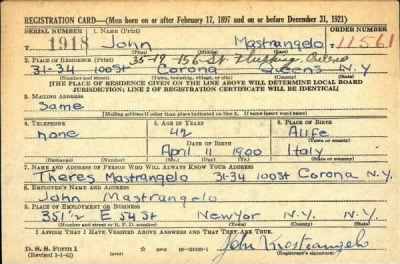 REGISTRATION CARD—(Men born on or after February 17, 1897 and on or before December 31, 1921)
SERIAL NUMBER 1. NAME (Print) ORDER NUMBER
1918 John Mastrangelo 11561
(First) (Middle) (Last)
35-19 156 St Flushing Queens
2. PLACE OF RESIDENCE (Print)
31-34 100 St Corona Queens N.Y
(Number and street) (Town, township, village, or city) (County) (State)
[THE PLACE OF RESIDENCE GIVEN ON THE LINE ABOVE WILL DETERMINE LOCAL BOARD
JURISDICTION; LINE 2 OF REGISTRATION CERTIFICATE WILL BE IDENTICAL]
3. MAILING ADDRESS
Same
[Mailing address if other than place indicated on line 2. If same insert word same]
4. TELEPHONE 5. AGE IN YEARS 6. PLACE OF BIRTH
none 42 Alife
DATE OF BIRTH
April 11 1900 Italy
7. NAME AND ADDRESS OF PERSON WHO WILL ALWAYS KNOW YOUR ADDRESS
Theres Mastrangelo 31-34 100 St Corona N.Y.
8. EMPLOYER'S NAME AND ADDRESS
John Mastrangelo
9. PLACE OF EMPLOYMENT OR BUSINESS
351½ E 54 St NewYor N.Y. N.Y.
(Number and street or R. F. D. number) (Town) (County) (State)
I AFFIRM THAT I HAVE VERIFIED ABOVE ANSWERS AND THAT THEY ARE TRUE.
D. S. S. Form 1 John Mastrangelo
(Revised 1-1-42) (Registrant's signature)